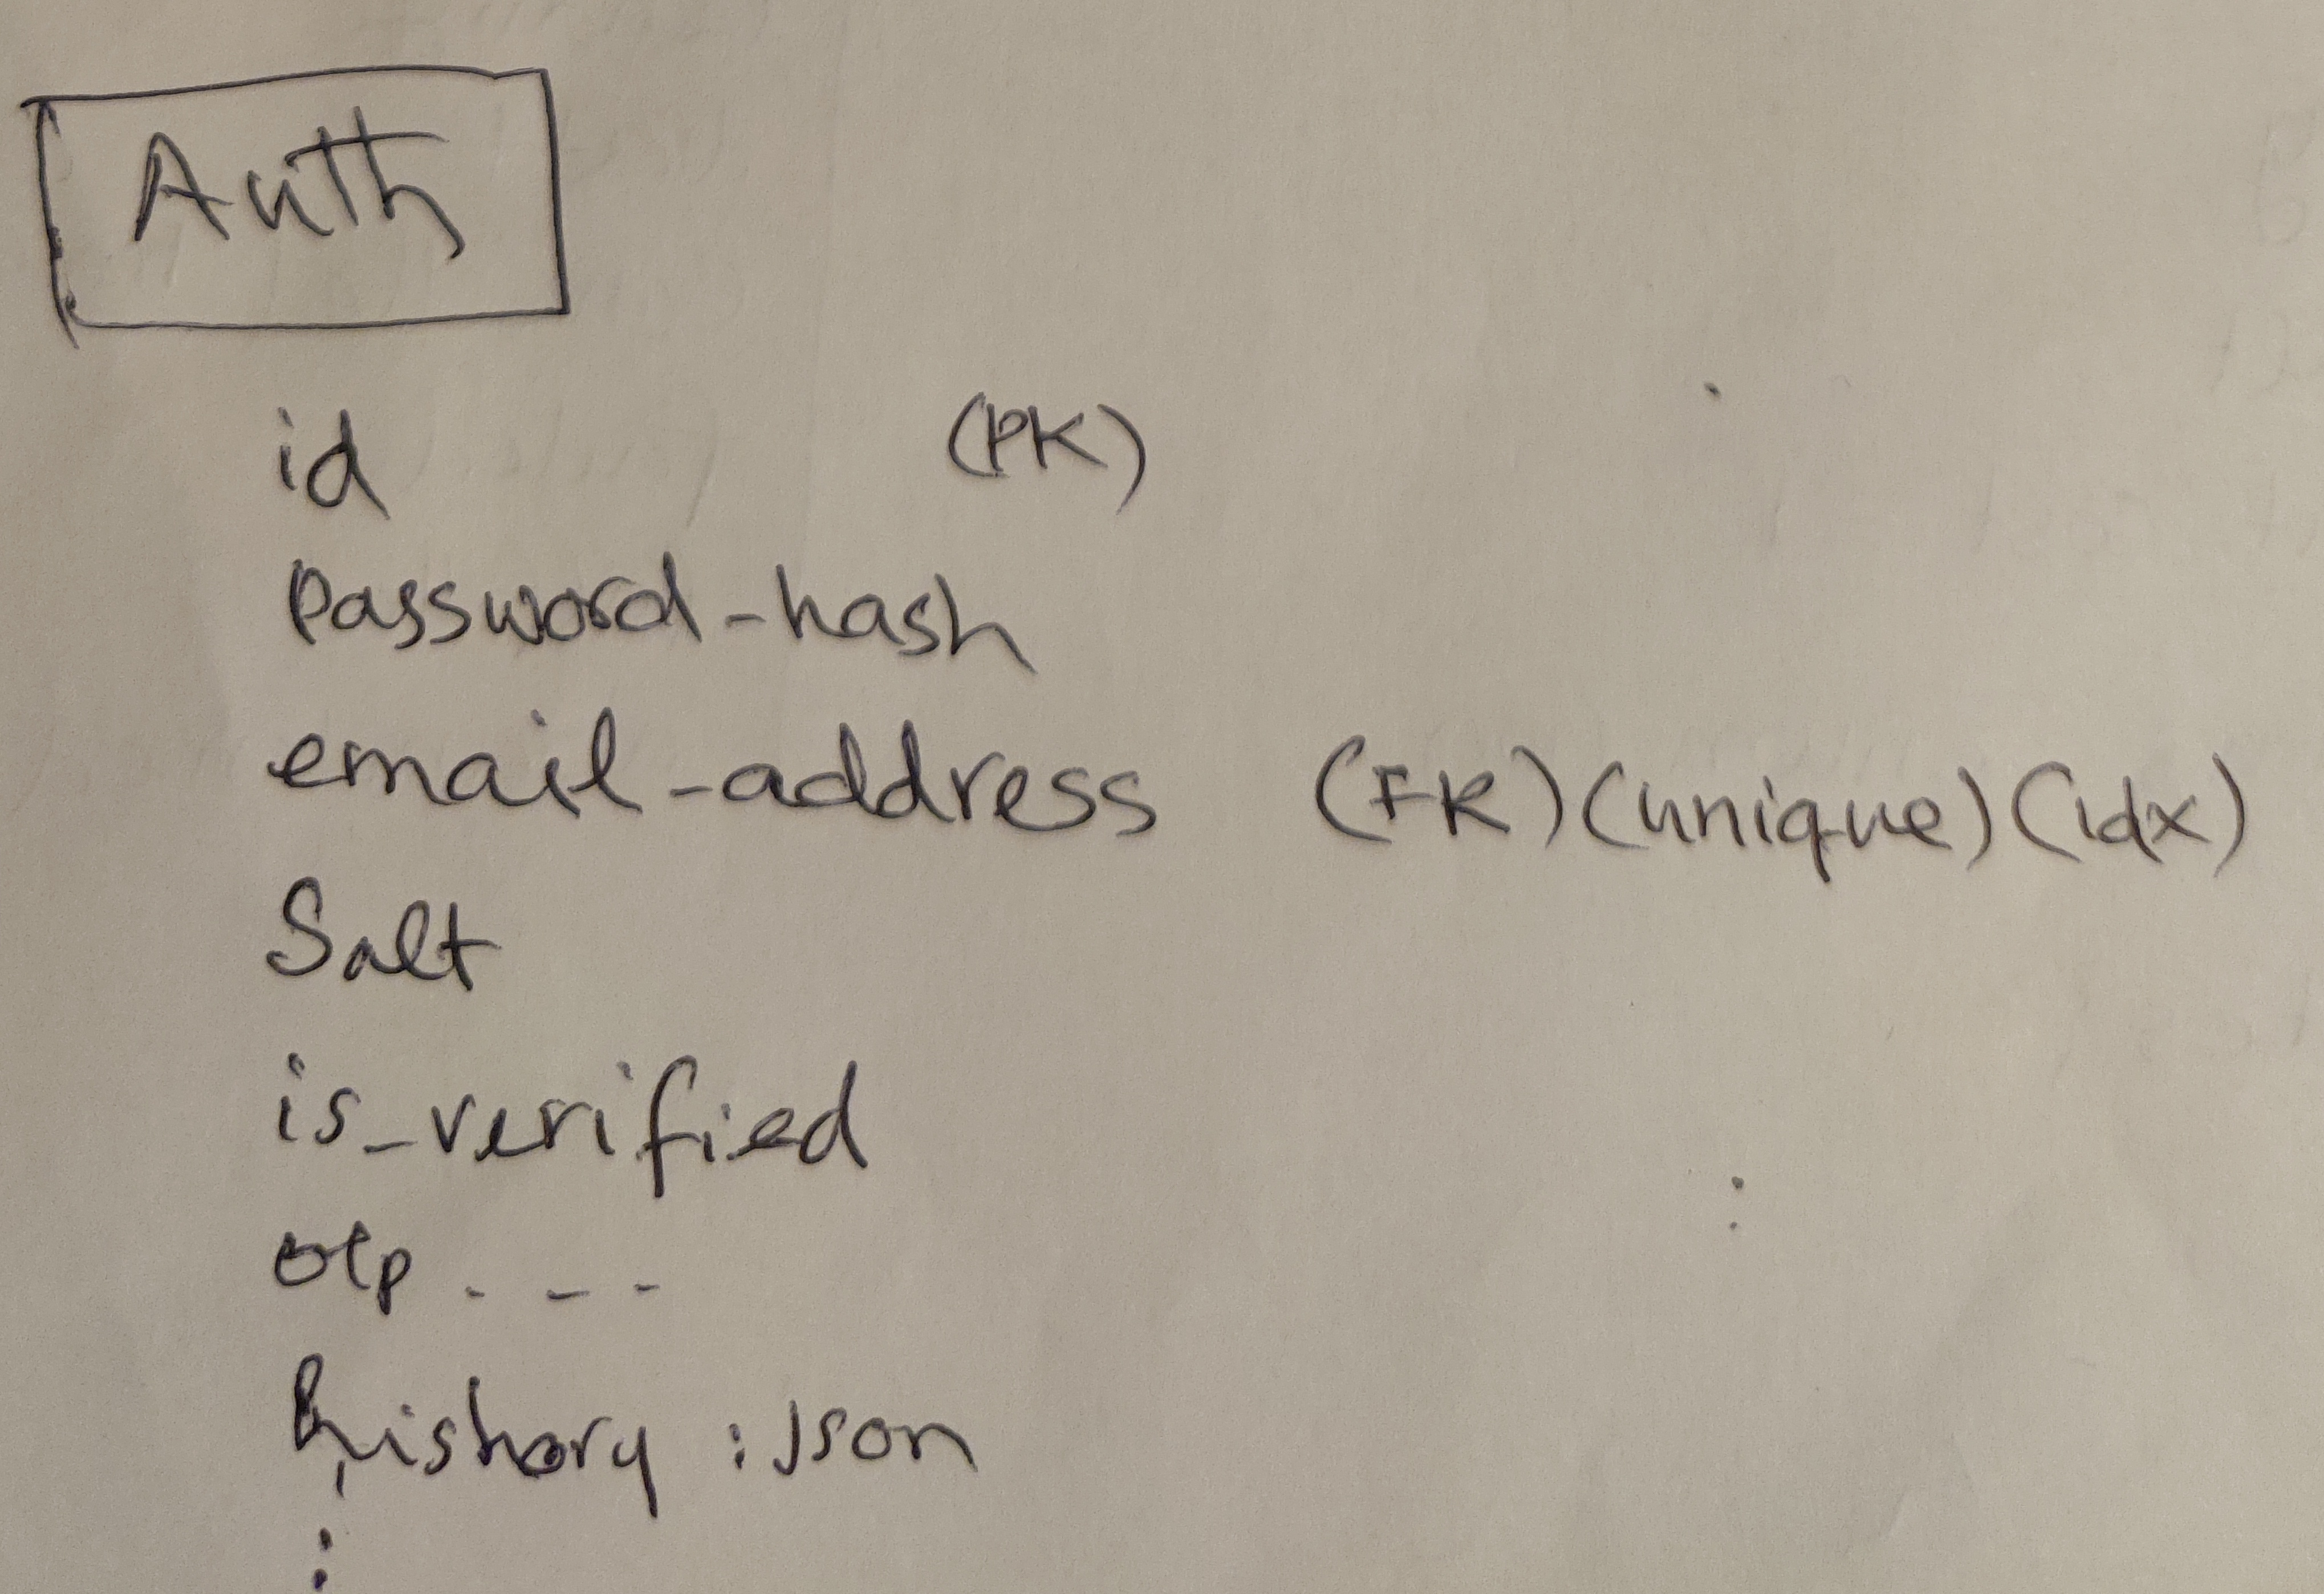 Auth
id (PK)
password-hash
email-address (FK)(unique)(idx)
Salt
is_verified
otp . - - -
history : json
: